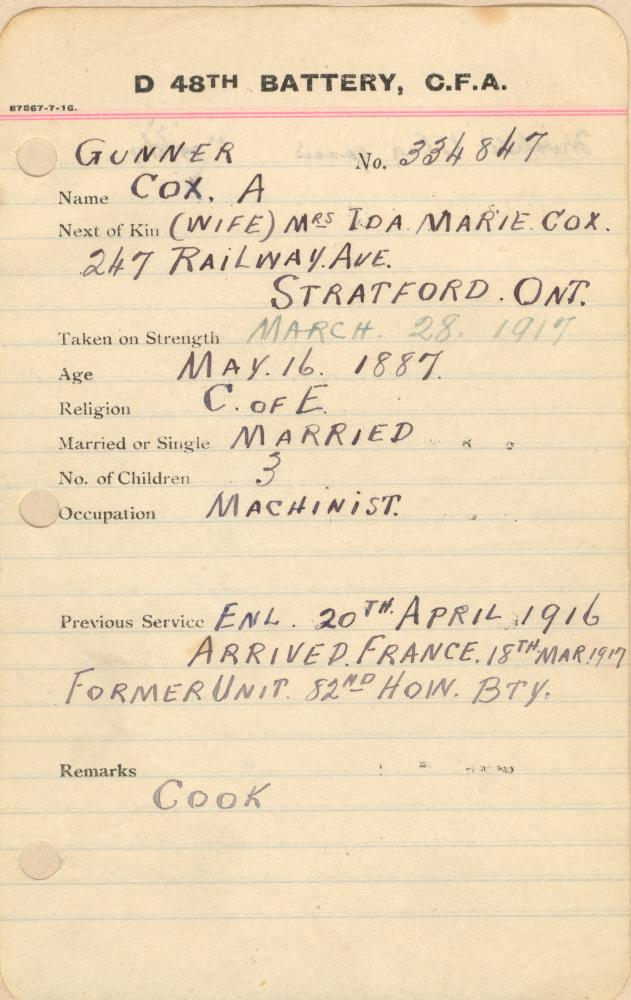 D 48TH BATTERY, C.F.A.
B7867-7-16.
GUNNER No. 334847
Name COX. A
Next of Kin (WIFE) MRS IDA. MARIE. COX.
247 RAILWAY. AVE.
STRATFORD. ONT.
Taken on Strength MARCH. 28. 1917
Age MAY. 16. 1887.
Religion C. OF E.
Married or Single MARRIED
No. of Children 3
Occupation MACHINIST.
Previous Service ENL. 20TH. APRIL 1916
ARRIVED. FRANCE. 18TH MAR. 1917
FORMER UNIT. 82ND HOW. BTY.
Remarks
COOK